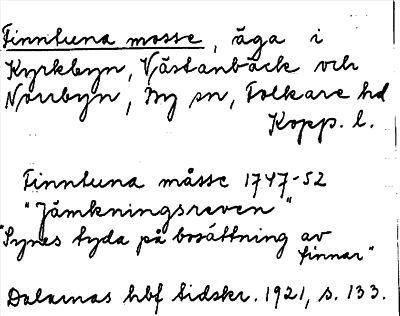 Finntuna mosse, äga i
Kyrkbyn, Västanbäck och
Norrbyn, By sn, Folkare hd
Kopp. l.
Finntuna måsse 1747-52
"Jämkningsreven"
"Synes tyda på bosättning av
finnar"
Dalarnas hbf tidskr. 1921, s. 133.